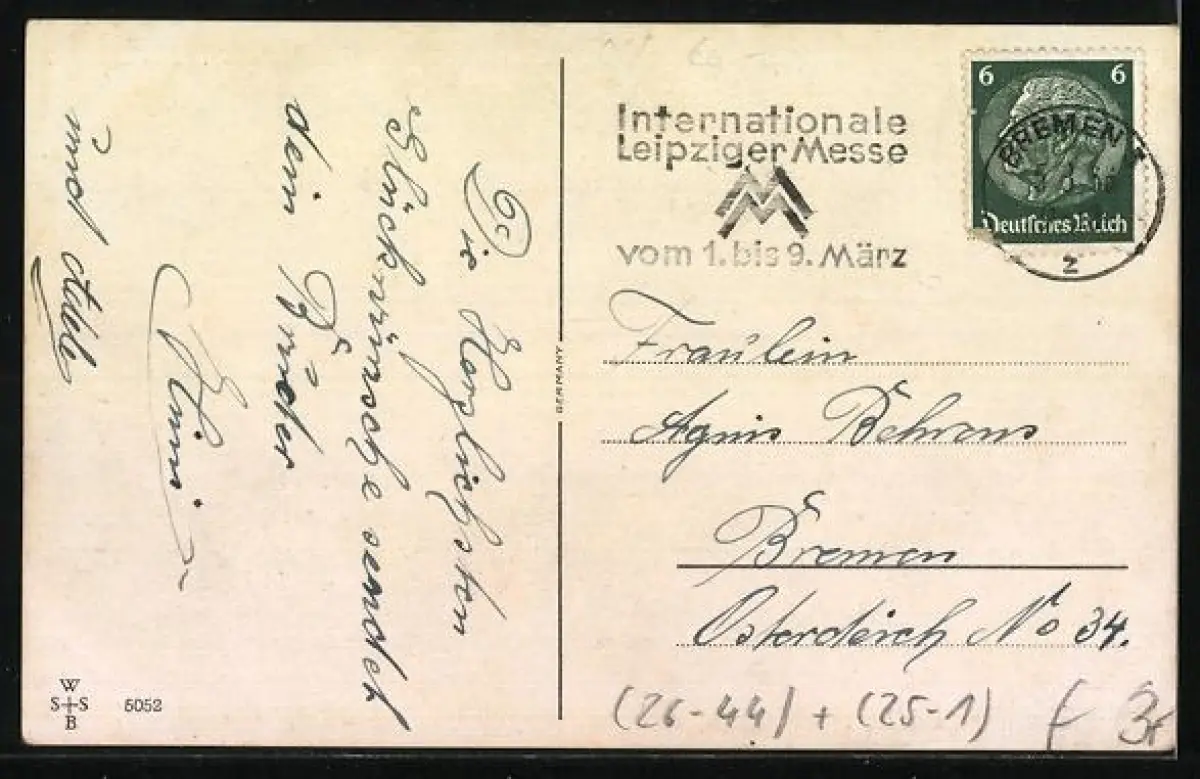 Die Herzlichsten
Glückwünsche sendet
dein Brüder
Hini
und
GERMANY
W
S S
B
5052
Internationale
Leipziger Messe
vom 1. bis 9. März
6 6
Deutsches Reich
BREMEN
2
Fraülein
Agnis Behrens
Bremen
Osterdeich No 34.
(26-44) + (25-1)